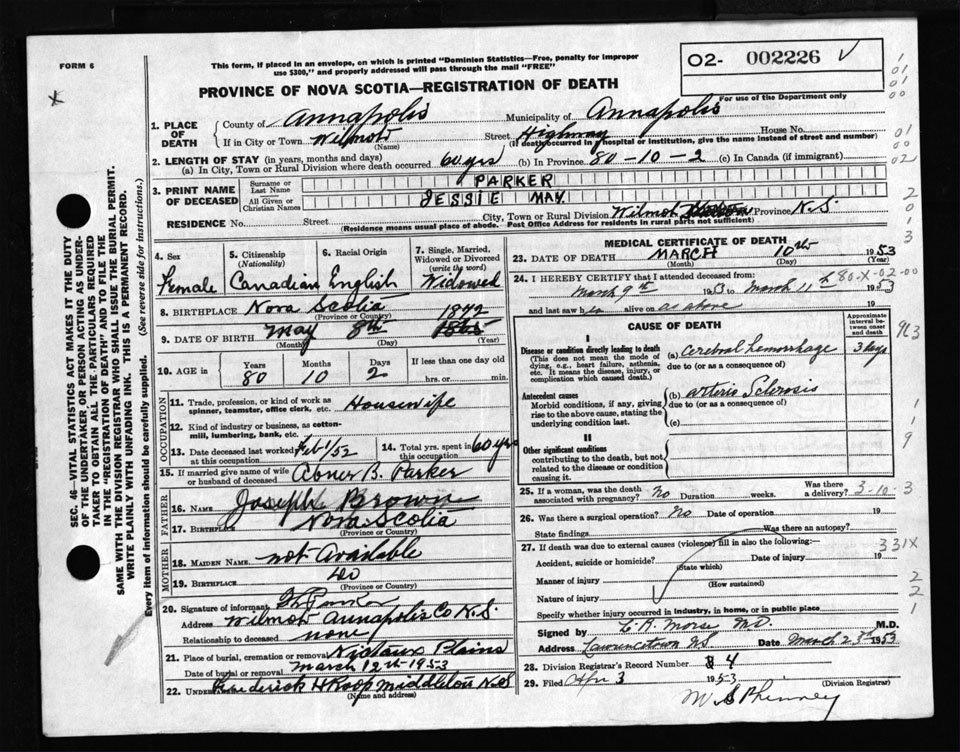 FORM 6
This form, if placed in an envelope, on which is printed "Dominion Statistics—Free, penalty for improper
use $300," and properly addressed will pass through the mail "FREE"
O2- 002226 V
For use of the Department only
PROVINCE OF NOVA SCOTIA—REGISTRATION OF DEATH
X
1. PLACE OF DEATH
County of Annapolis Municipality of Annapolis
If in City or Town Wilmot Street Highway House No.
(Name) (If death occurred in hospital or institution, give the name instead of street and number)
2. LENGTH OF STAY (in years, months and days)
(a) In City, Town or Rural Division where death occurred 60 yrs (b) In Province 80-10-2 (c) In Canada (if immigrant)
3. PRINT NAME OF DECEASED
Surname or Last Name PARKER
All Given or Christian Names JESSIE MAY
RESIDENCE No. Street City, Town or Rural Division Wilmot Province N.S.
(Residence means usual place of abode. Post Office Address for residents in rural parts not sufficient)
4. Sex Female
5. Citizenship (Nationality) Canadian
6. Racial Origin English
7. Single, Married, Widowed or Divorced (write the word) Widowed
8. BIRTHPLACE Nova Scotia
(Province or Country)
1872
9. DATE OF BIRTH May 8th
(Month) (Day) (Year)
10. AGE in Years 80 Months 10 Days 2 If less than one day old hrs. or min.
OCCUPATION
11. Trade, profession, or kind of work as spinner, teamster, office clerk, etc. Housewife
12. Kind of industry or business, as cotton-mill, lumbering, bank, etc.
13. Date deceased last worked at this occupation Feb 1/52
14. Total yrs. spent in this occupation 60 yrs
15. If married give name of wife or husband of deceased Abner B. Parker
FATHER
16. Name Joseph Brown
17. Birthplace Nova Scotia
(Province or Country)
MOTHER
18. MAIDEN NAME not Available
19. BIRTHPLACE do
(Province or Country)
20. Signature of informant Parker
Address Wilmot Annapolis Co N.S.
Relationship to deceased none
21. Place of burial, cremation or removal Nictaux Plains
Date of burial or removal March 12th-1953
22. Undertaker Frederick H Roop Middleton N.S
(Name and address)
MEDICAL CERTIFICATE OF DEATH
23. DATE OF DEATH MARCH 10th 1953
(Month) (Day) (Year)
24. I HEREBY CERTIFY that I attended deceased from:
March 9th 1953 to March 11th 1953
80-X-02-00
and last saw h alive on as above 19
CAUSE OF DEATH
Approximate interval between onset and death
I
Disease or condition directly leading to death
(This does not mean the mode of dying, e.g., heart failure, asthenia, etc. It means the disease, injury, or complication which caused death.)
(a) Cerebral hemorrhage 3 days
due to (or as a consequence of)
Antecedent causes
Morbid conditions, if any, giving rise to the above cause, stating the underlying condition last.
(b) arterio Sclerosis
due to (or as a consequence of)
(c)
II
Other significant conditions
contributing to the death, but not related to the disease or condition causing it.
25. If a woman, was the death associated with pregnancy? No Duration weeks. Was there a delivery? 3-10-3
26. Was there a surgical operation? No Date of operation 19
State findings Was there an autopsy?
27. If death was due to external causes (violence) fill in also the following:—
331X
Accident, suicide or homicide? Date of injury 19
(State which)
Manner of injury
(How sustained)
Nature of injury
Specify whether injury occurred in industry, in home, or in public place
Signed by Morse M.D. M.D.
Address Lawrencetown NS Date March 23rd 1953
28. Division Registrar's Record Number 4
29. Filed Apr 3 1953
(Division Registrar)
M S Phinney
SEC. 46—VITAL STATISTICS ACT MAKES IT THE DUTY
OF THE UNDERTAKER OR PERSON ACTING AS UNDER-
TAKER TO OBTAIN ALL THE PARTICULARS REQUIRED
IN THE "REGISTRATION OF DEATH" AND TO FILE THE
SAME WITH THE DIVISION REGISTRAR WHO SHALL ISSUE THE BURIAL PERMIT.
WRITE PLAINLY WITH UNFADING INK. THIS IS A PERMANENT RECORD.
Every item of information should be carefully supplied. (See reverse side for instructions.)